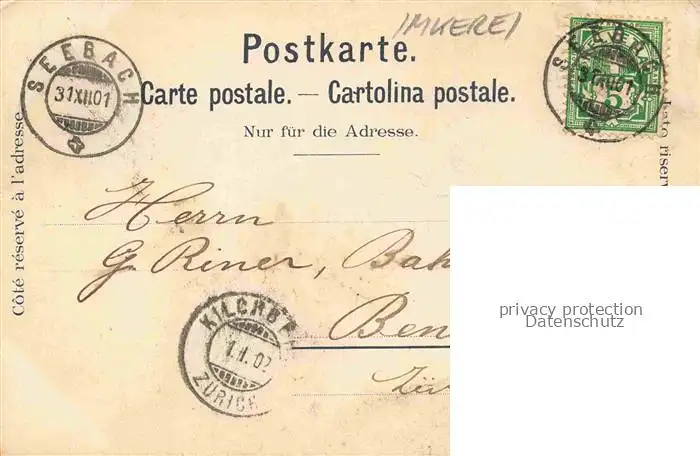 IMKEREI
Postkarte.
Carte postale. — Cartolina postale.
Nur für die Adresse.
SEEBACH
31 XII 01
SEEBACH
31 XII 01
5
Côté réservé à l'adresse.
Lato riserv
Herrn
G. Riner, Bah
Ben
Zür
KILCHBE
1. I. 02
ZÜRICH
privacy protection
Datenschutz